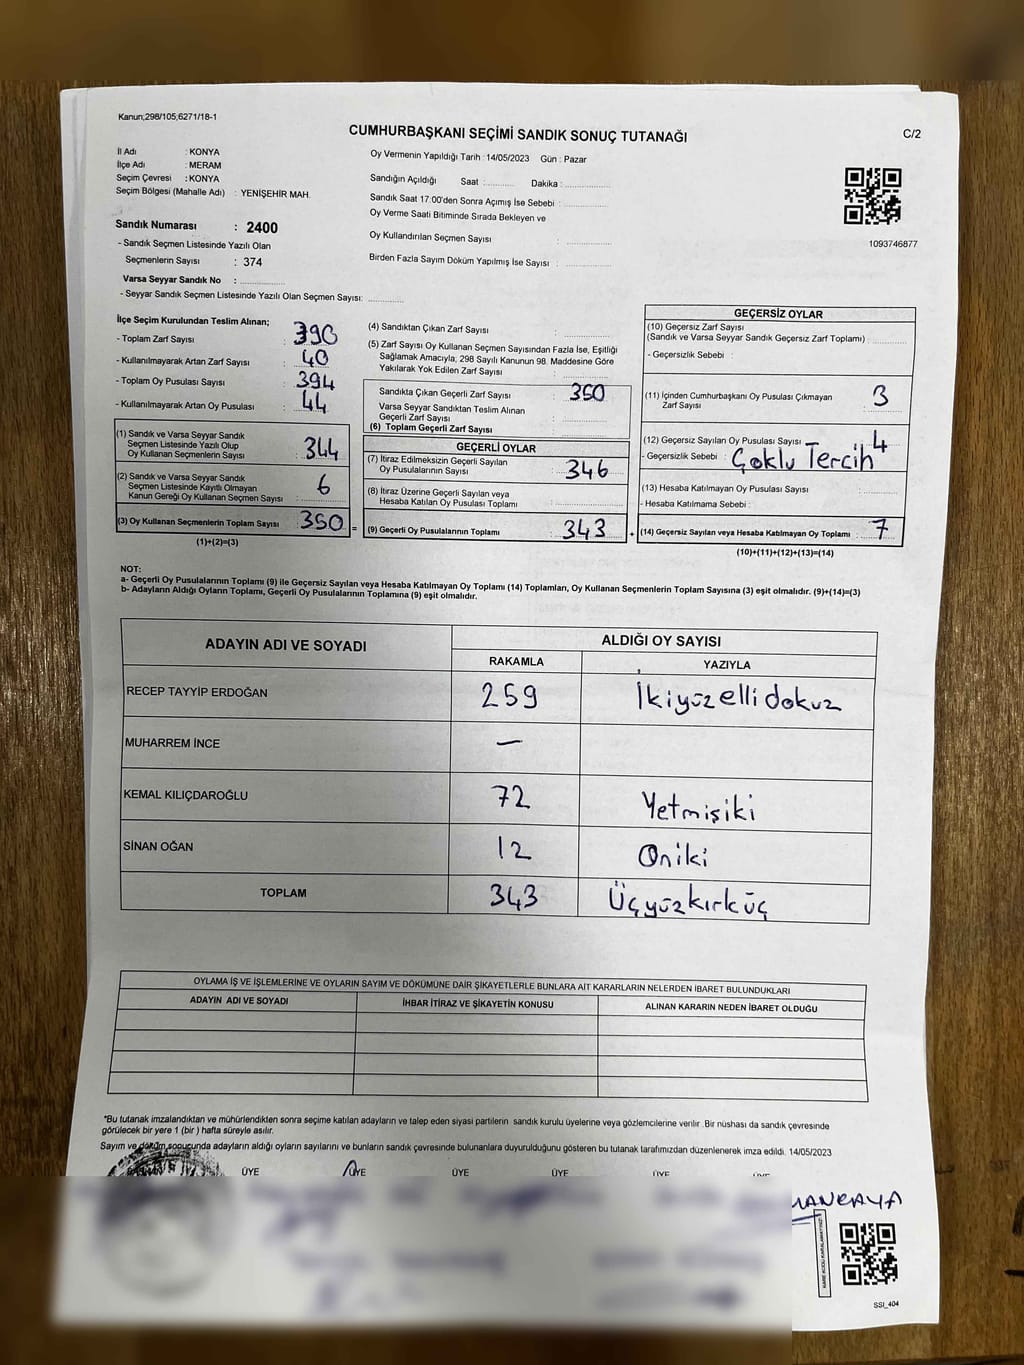 Kanun;298/105,6271/18-1
CUMHURBAŞKANI SEÇİMİ SANDIK SONUÇ TUTANAĞI
C/2
İl Adı : KONYA
İlçe Adı : MERAM
Seçim Çevresi : KONYA
Seçim Bölgesi (Mahalle Adı) : YENİŞEHİR MAH.
Sandık Numarası : 2400
- Sandık Seçmen Listesinde Yazılı Olan
Seçmenlerin Sayısı : 374
Varsa Seyyar Sandık No :
- Seyyar Sandık Seçmen Listesinde Yazılı Olan Seçmen Sayısı:
Oy Vermenin Yapıldığı Tarih : 14/05/2023 Gün : Pazar
Sandığın Açıldığı Saat : Dakika :
Sandık Saat 17.00'den Sonra Açımış İse Sebebi :
Oy Verme Saati Bitiminde Sırada Bekleyen ve
Oy Kullandırılan Seçmen Sayısı :
Birden Fazla Sayım Döküm Yapılmış İse Sayısı :
1093746877
İlçe Seçim Kurulundan Teslim Alınan;
- Toplam Zarf Sayısı : 390
- Kullanılmayarak Artan Zarf Sayısı : 40
- Toplam Oy Pusulası Sayısı : 394
- Kullanılmayarak Artan Oy Pusulası : 44
(1) Sandık ve Varsa Seyyar Sandık
Seçmen Listesinde Yazılı Olup
Oy Kullanan Seçmenlerin Sayısı : 344
(2) Sandık ve Varsa Seyyar Sandık
Seçmen Listesinde Kayıtlı Olmayan
Kanun Gereği Oy Kullanan Seçmen Sayısı : 6
(3) Oy Kullanan Seçmenlerin Toplam Sayısı : 350 =
(1)+(2)=(3)
(4) Sandıktan Çıkan Zarf Sayısı :
(5) Zarf Sayısı Oy Kullanan Seçmen Sayısından Fazla İse, Eşitliği
Sağlamak Amacıyla; 298 Sayılı Kanunun 98. Maddesine Göre
Yakılarak Yok Edilen Zarf Sayısı :
Sandıkta Çıkan Geçerli Zarf Sayısı : 350
Varsa Seyyar Sandıktan Teslim Alınan
Geçerli Zarf Sayısı :
(6) Toplam Geçerli Zarf Sayısı :
GEÇERLİ OYLAR
(7) İtiraz Edilmeksizin Geçerli Sayılan
Oy Pusulalarının Sayısı : 346
(8) İtiraz Üzerine Geçerli Sayılan veya
Hesaba Katılan Oy Pusulaları Toplamı :
(9) Geçerli Oy Pusulalarının Toplamı : 343 +
GEÇERSİZ OYLAR
(10) Geçersiz Zarf Sayısı
(Sandık ve Varsa Seyyar Sandık Geçersiz Zarf Toplamı) :
- Geçersizlik Sebebi :
(11) İçinden Cumhurbaşkanı Oy Pusulası Çıkmayan
Zarf Sayısı : 3
(12) Geçersiz Sayılan Oy Pusulası Sayısı : 4
- Geçersizlik Sebebi : Çoklu Tercih
(13) Hesaba Katılmayan Oy Pusulası Sayısı :
- Hesaba Katılmama Sebebi :
(14) Geçersiz Sayılan veya Hesaba Katılmayan Oy Toplamı : 7
(10)+(11)+(12)+(13)=(14)
NOT:
a- Geçerli Oy Pusulalarının Toplamı (9) ile Geçersiz Sayılan veya Hesaba Katılmayan Oy Toplamı (14) Toplamları, Oy Kullanan Seçmenlerin Toplam Sayısına (3) eşit olmalıdır. (9)+(14)=(3)
b- Adayların Aldığı Oyların Toplamı, Geçerli Oy Pusulalarının Toplamına (9) eşit olmalıdır.
ADAYIN ADI VE SOYADI ALDIĞI OY SAYISI
RAKAMLA YAZIYLA
RECEP TAYYİP ERDOĞAN 259 İkiyüzellidokuz
MUHARREM İNCE —
KEMAL KILIÇDAROĞLU 72 Yetmişiki
SİNAN OĞAN 12 Oniki
TOPLAM 343 Üçyüzkırküç
OYLAMA İŞ VE İŞLEMLERİNE VE OYLARIN SAYIM VE DÖKÜMÜNE DAİR ŞİKAYETLERLE BUNLARA AİT KARARLARIN NELERDEN İBARET BULUNDUKLARI
ADAYIN ADI VE SOYADI İHBAR İTİRAZ VE ŞİKAYETİN KONUSU ALINAN KARARIN NEDEN İBARET OLDUĞU
*Bu tutanak imzalandıktan ve mühürlendikten sonra seçime katılan adayların ve talep eden siyasi partilerin sandık kurulu üyelerine veya gözlemcilerine verilir. Bir nüshası da sandık çevresinde
görülecek bir yere 1 (bir ) hafta süreyle asılır.
Sayım ve döküm sonucunda adayların aldığı oyların sayılarını ve bunların sandık çevresinde bulunanlara duyurulduğunu gösteren bu tutanak tarafımızdan düzenlenerek imza edildi. 14/05/2023
ÜYE ÜYE ÜYE ÜYE ÜYE
SSI_404